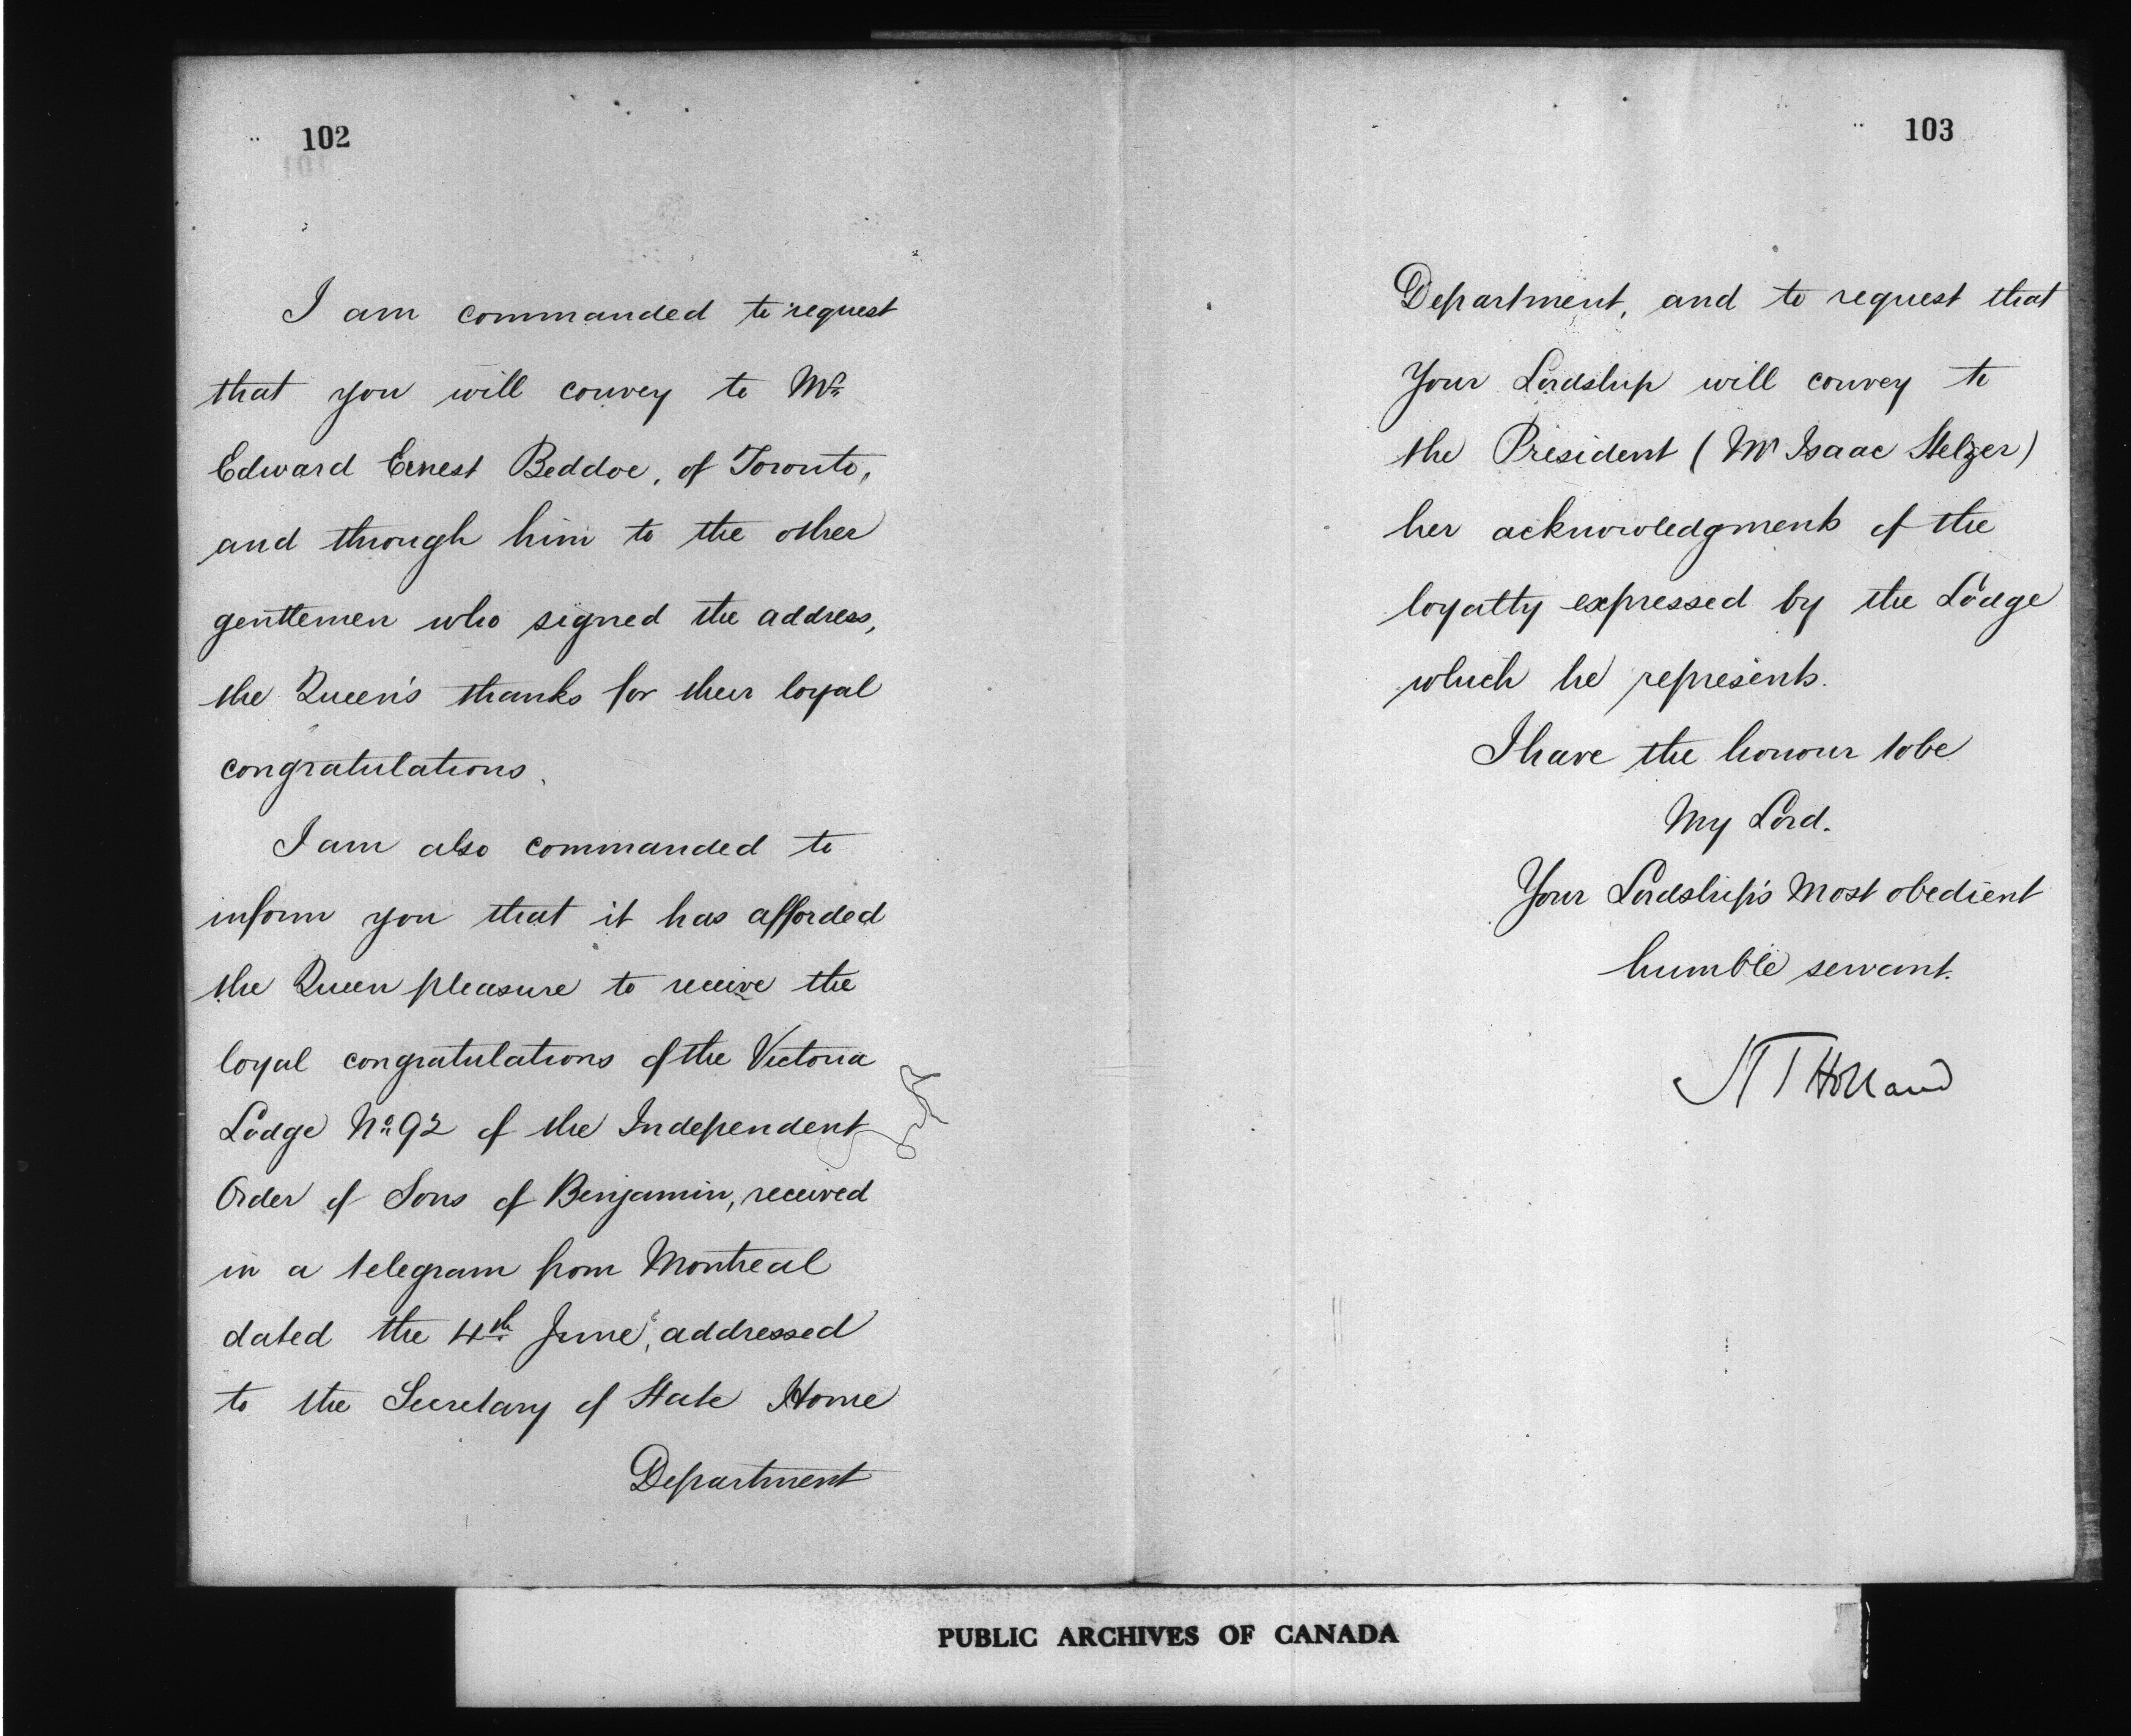 102
I am commanded to request
that you will convey to Mr
Edward Ernest Beddoe, of Toronto,
and through him to the other
gentlemen who signed the address,
the Queen's thanks for their loyal
congratulations.
I am also commanded to
inform you that it has afforded
the Queen pleasure to receive the
loyal congratulations of the Victoria
Lodge No 92 of the Independent
Order of Sons of Benjamin, received
in a telegram from Montreal
dated the 4th June, addressed
to the Secretary of State Home
Department
103
Department, and to request that
Your Lordship will convey to
the President (Mr Isaac Stelzer)
her acknowledgments of the
loyalty expressed by the Lodge
which he represents.
I have the honour to be
My Lord.
Your Lordship's Most obedient
humble servant.
Holland
PUBLIC ARCHIVES OF CANADA